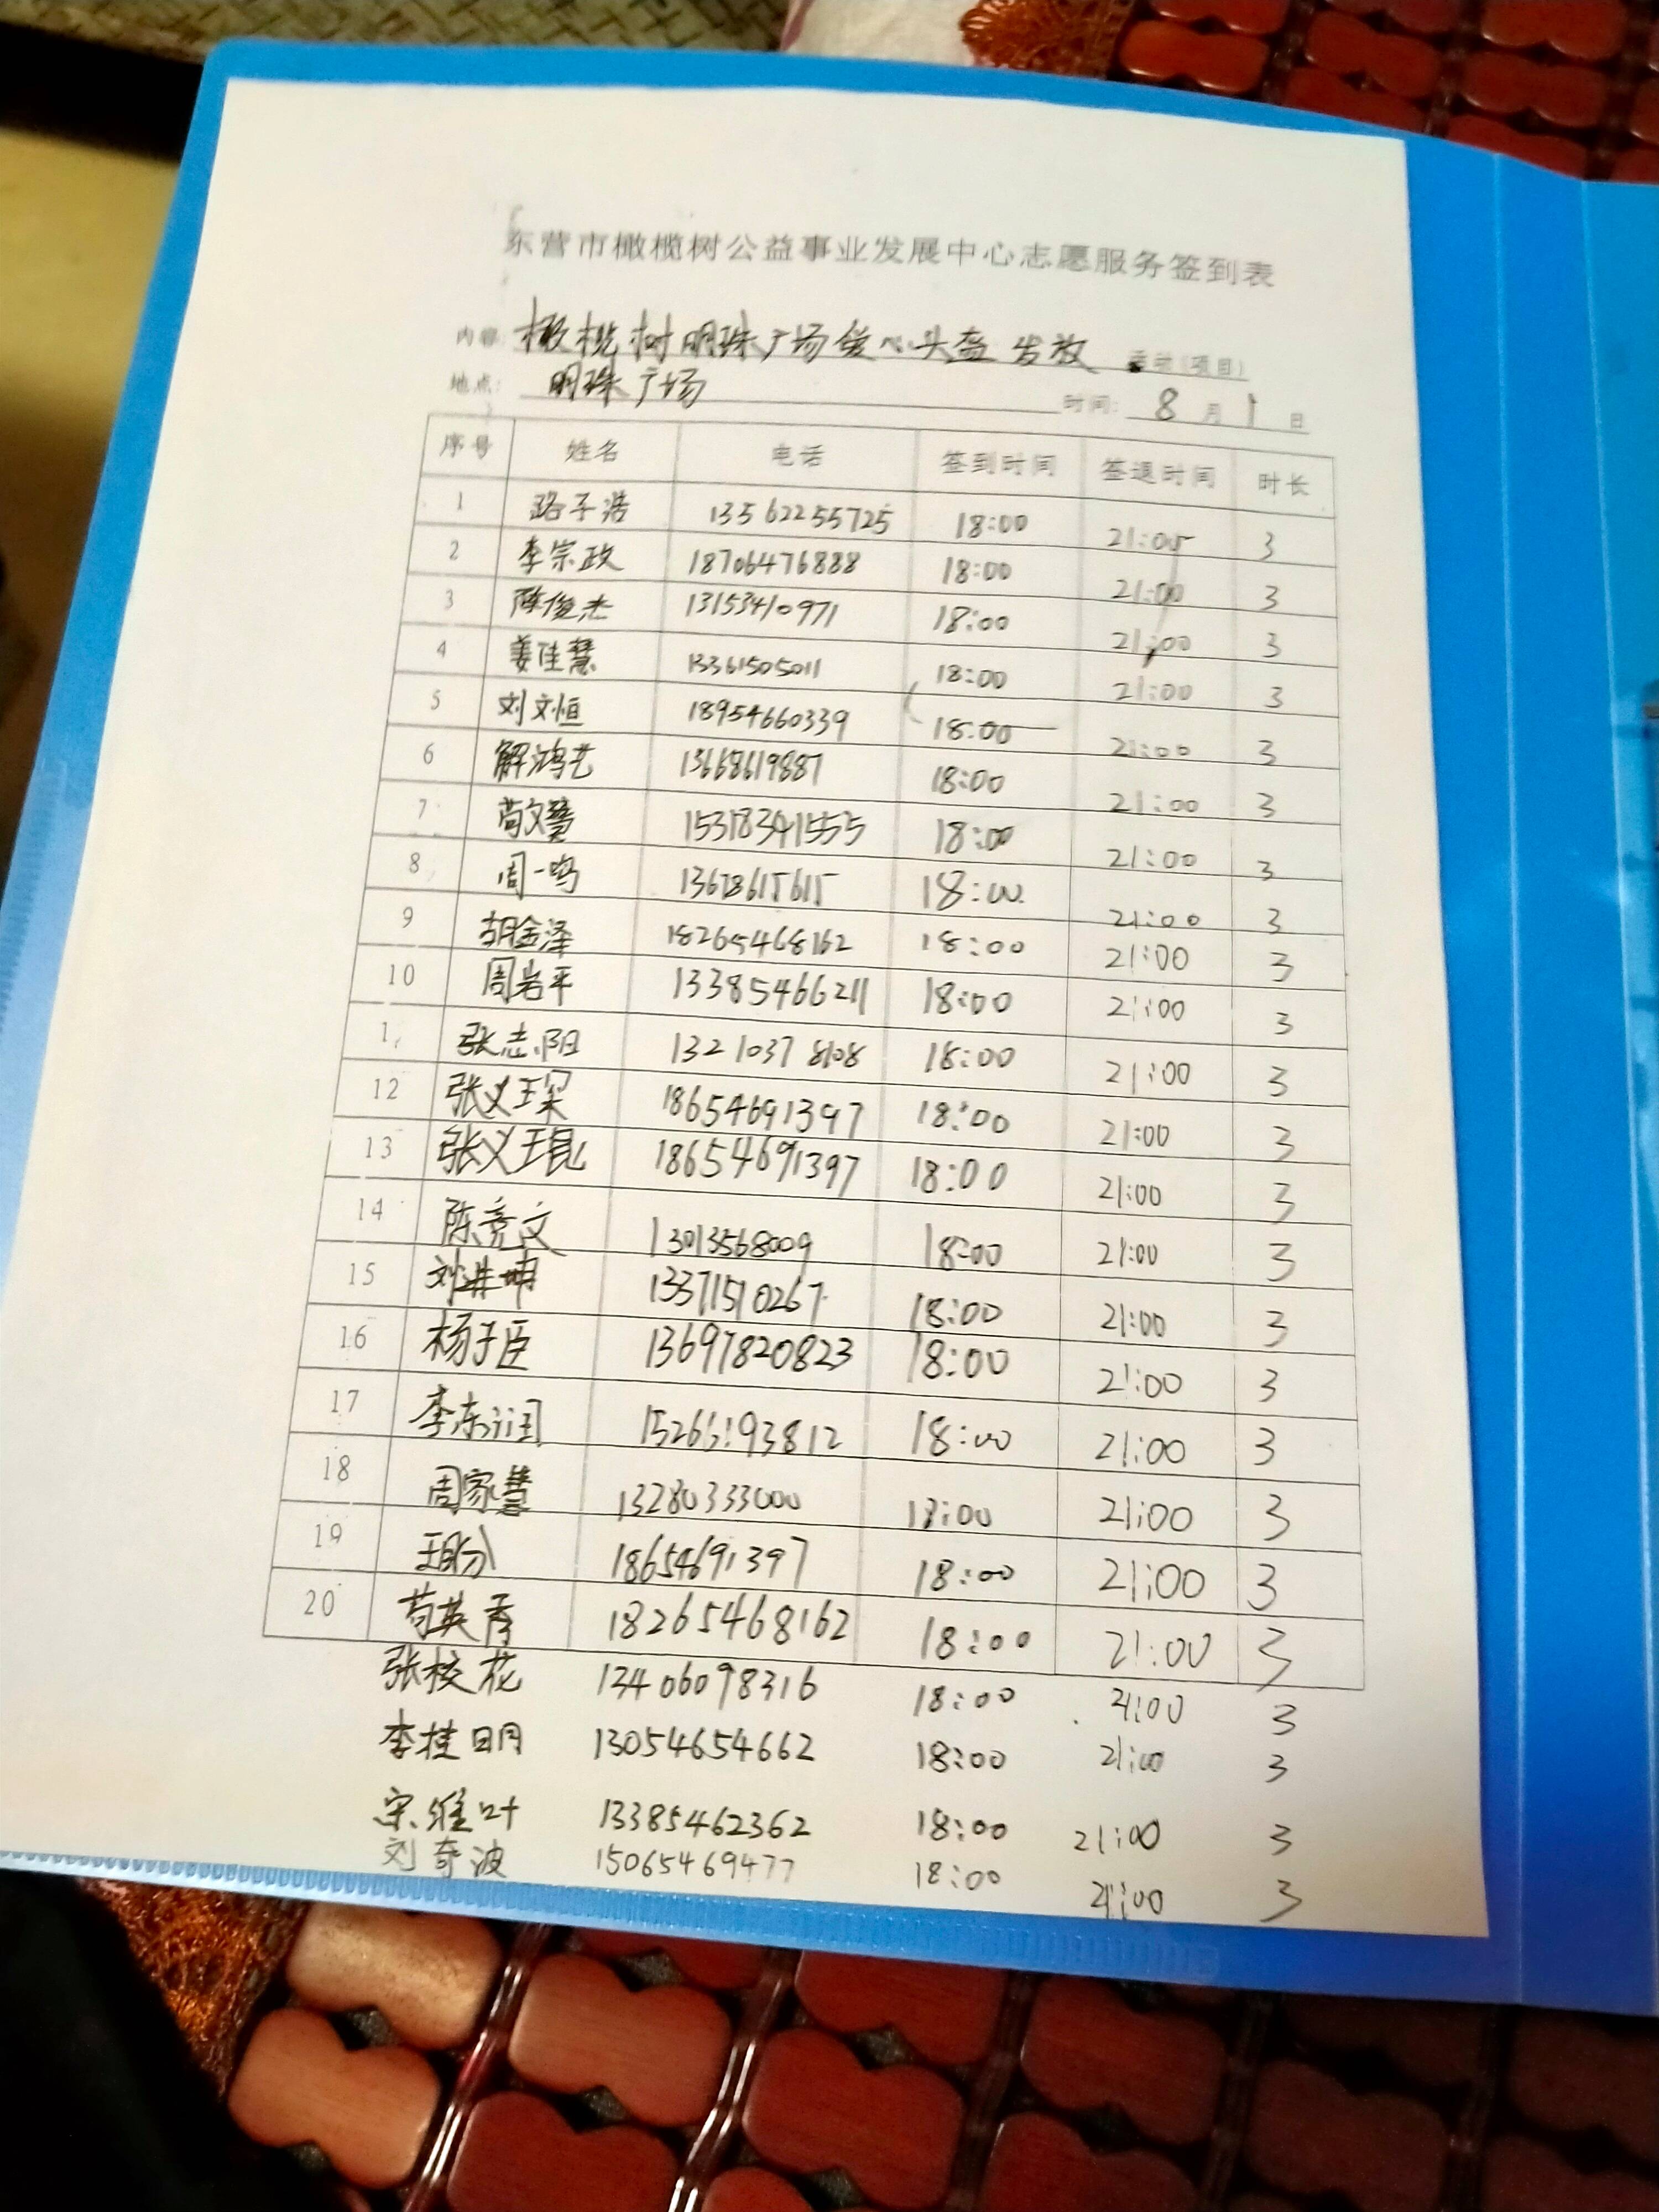 东营市橄榄树公益事业发展中心志愿服务签到表
内容: 橄榄树明珠广场爱心头盔发放 活动(项目)
地点: 明珠广场 时间: 8 月 1 日
序号 姓名 电话 签到时间 签退时间 时长
1 路子浩 13562255725 18:00 21:00 3
2 李宗政 18706476888 18:00 21:00 3
3 陈俊杰 13153410971 18:00 21:00 3
4 姜佳慧 13361505011 18:00 21:00 3
5 刘文恒 18954660339 18:00 21:00 3
6 解鸿艺 13668619887 18:00 21:00 3
7 苟文慧 15318341555 18:00 21:00 3
8 周一鸣 13678615615 18:00 21:00 3
9 胡金泽 18265468162 18:00 21:00 3
10 周岩平 13385466211 18:00 21:00 3
1 张志阳 13210378108 18:00 21:00 3
12 张义琛 18654691397 18:00 21:00 3
13 张义琨 18654691397 18:00 21:00 3
14 陈竞文 13013568009 18:00 21:00 3
15 刘洪坤 13371510267 18:00 21:00 3
16 杨子臣 13697820823 18:00 21:00 3
17 李东润 15266193812 18:00 21:00 3
18 周家慧 13280333000 18:00 21:00 3
19 王盼 18654691397 18:00 21:00 3
20 苟英秀 18265468162 18:00 21:00 3
张校花 13406098316 18:00 21:00 3
李桂明 13054654662 18:00 21:00 3
宋维叶 13385462362 18:00 21:00 3
刘奇波 15065469477 18:00 21:00 3